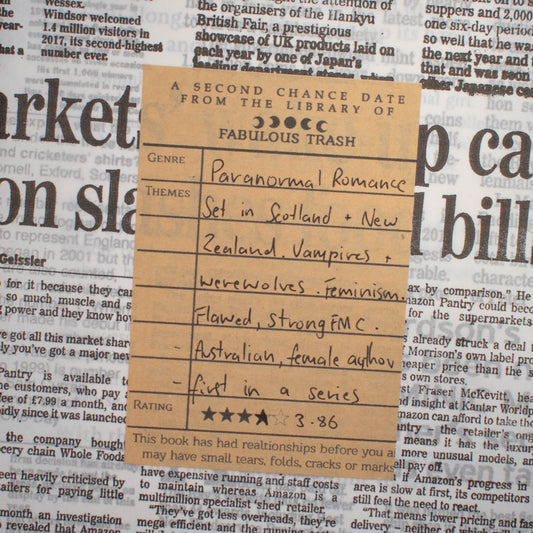 Wessex.
Windsor welcomed
1.4 million visitors in
2017, its second-highest
number ever.
the organisers of the Hankyu
British Fair, a prestigious
showcase of UK products laid on
each year by one of Japan's
leading department stores
suppers and 2,000
one six-day period
so well that he was
the next year and t
that and was soon
other Japanese ce
A SECOND CHANCE DATE
FROM THE LIBRARY OF
FABULOUS TRASH
GENRE Paranormal Romance
THEMES Set in Scotland + New
Zealand. Vampires +
werewolves. Feminism.
Flawed, strong FMC.
- Australian, female author
- first in a series
RATING ★★★★☆ 3.86
This book has had realtionships before you a
may have small tears, folds, cracks or marks
arkets
on sla
p ca
bills
Geissler'
for it because they car
so much muscle and s
g power and they know ho
've got all this market share
ly you've got a major new
Pantry is available to
he customers, who pay a
fee of £7.99 a month, and
idly since it was launched
the company bought
cery chain Whole Foods
been heavily criticised by
tailers for paying little
month an investigation
revealed that Amazon
have expensive running and staff costs
to maintain, whereas Amazon is a
multimillion specialist 'shed' retailer.
"They've got less overheads, they're
mega efficient and the running costs
ax by comparison." He
mazon Pantry could become
for the supermarkets
s already struck a deal t
Morrison's own label pro
eaper price than the s
s own stores.
st Fraser McKevitt, head
d insight at Kantar Worldp
mazon can afford to take the
ntry - the retailer's ong
means it has the luxur
more unusual models, an
ll pay off.
if Amazon's progress in
area is slow at first, its competitors
still feel the need to react.
"That means lower pricing and fas
delivery – neither of which